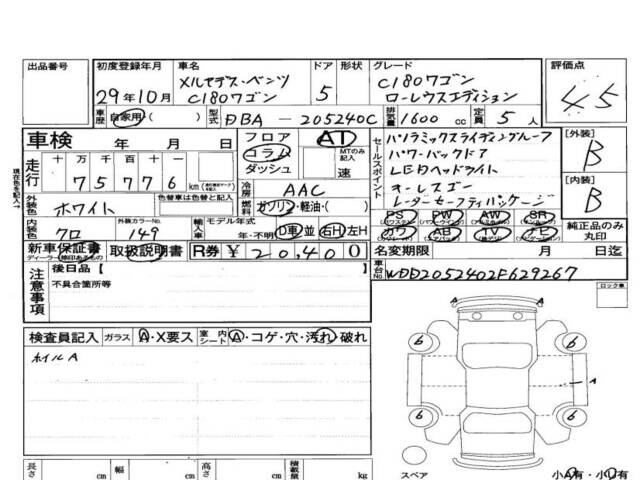 出品番号
初度登録年月
29年10月
車名
メルセデス・ベンツ
C180ワゴン
ドア
5
形状
グレード
C180ワゴン
ローレウスエディション
評価点
4.5
車歴
自家用 ( )
型式
DBA-205240C
排気量
1600 cc
定員
5 人
車検 年 月 日
走行
十万 千百十
75776 km
現在色を記入→
外装色
ホワイト
色替車は色替と記入
内装色
クロ
外装カラーNo.
149
フロア
コラム
ダッシュ
AT
MTのみ記入
速
冷房
AAC
燃料
ガソリン・軽油・( )
輸入車
モデル年式
年・不明
D車 並
右H 左H
セールスポイント
パノラミックスライディングルーフ
パワーバックドア
LEDヘッドライト
オーレスゴー
レーダーセーフティパッケージ
PS PW AW SR
カワ AB TV ナビ
[外装]
B
[内装]
B
純正品のみ丸印
新車保証書
取扱説明書
R券 ¥20,400
名変期限 年 月 日迄
車台No.
WDD2052402F629267
注意事項
後日品 [ ]
不具合箇所等
ロック車
検査員記入
ガラス
A・X要ス
室内シート
A・コゲ・穴・汚れ・破れ
ホイルA
A
A
6
6
6
6
A
スペア
小A有・小U有
長さ cm
幅 cm
高さ cm
積載量 kg